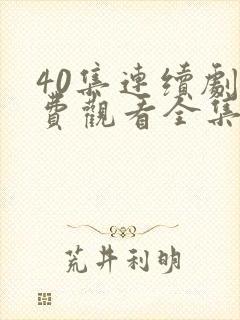 40集連續劇
費觀看全集
荒井利明